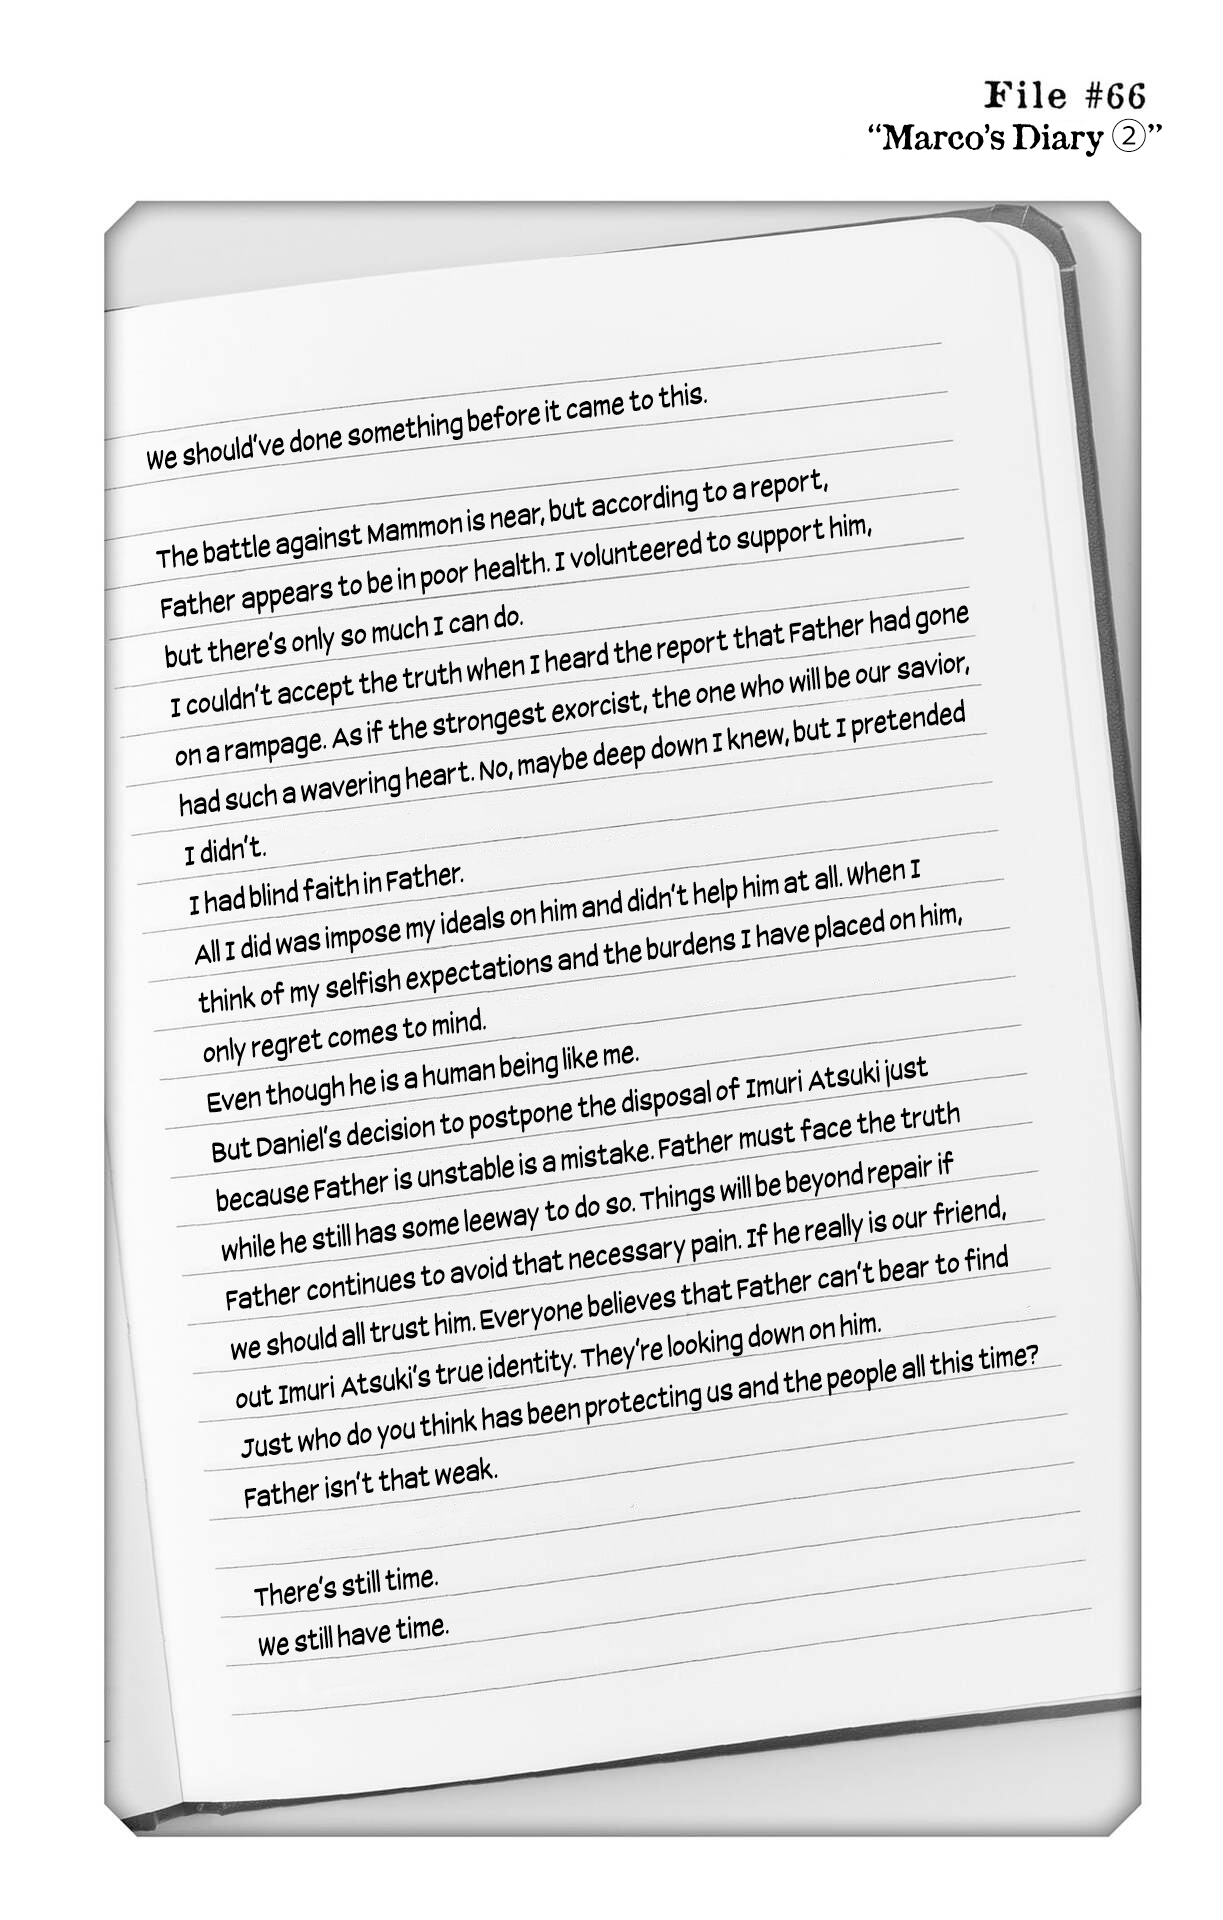 File #66
“Marco’s Diary ②”
We should’ve done something before it came to this.
The battle against Mammon is near, but according to a report,
Father appears to be in poor health. I volunteered to support him,
but there’s only so much I can do.
I couldn’t accept the truth when I heard the report that Father had gone
on a rampage. As if the strongest exorcist, the one who will be our savior,
had such a wavering heart. No, maybe deep down I knew, but I pretended
I didn’t.
I had blind faith in Father.
All I did was impose my ideals on him and didn’t help him at all. When I
think of my selfish expectations and the burdens I have placed on him,
only regret comes to mind.
Even though he is a human being like me.
But Daniel’s decision to postpone the disposal of Imuri Atsuki just
because Father is unstable is a mistake. Father must face the truth
while he still has some leeway to do so. Things will be beyond repair if
Father continues to avoid that necessary pain. If he really is our friend,
we should all trust him. Everyone believes that Father can’t bear to find
out Imuri Atsuki’s true identity. They’re looking down on him.
Just who do you think has been protecting us and the people all this time?
Father isn’t that weak.
There’s still time.
We still have time.